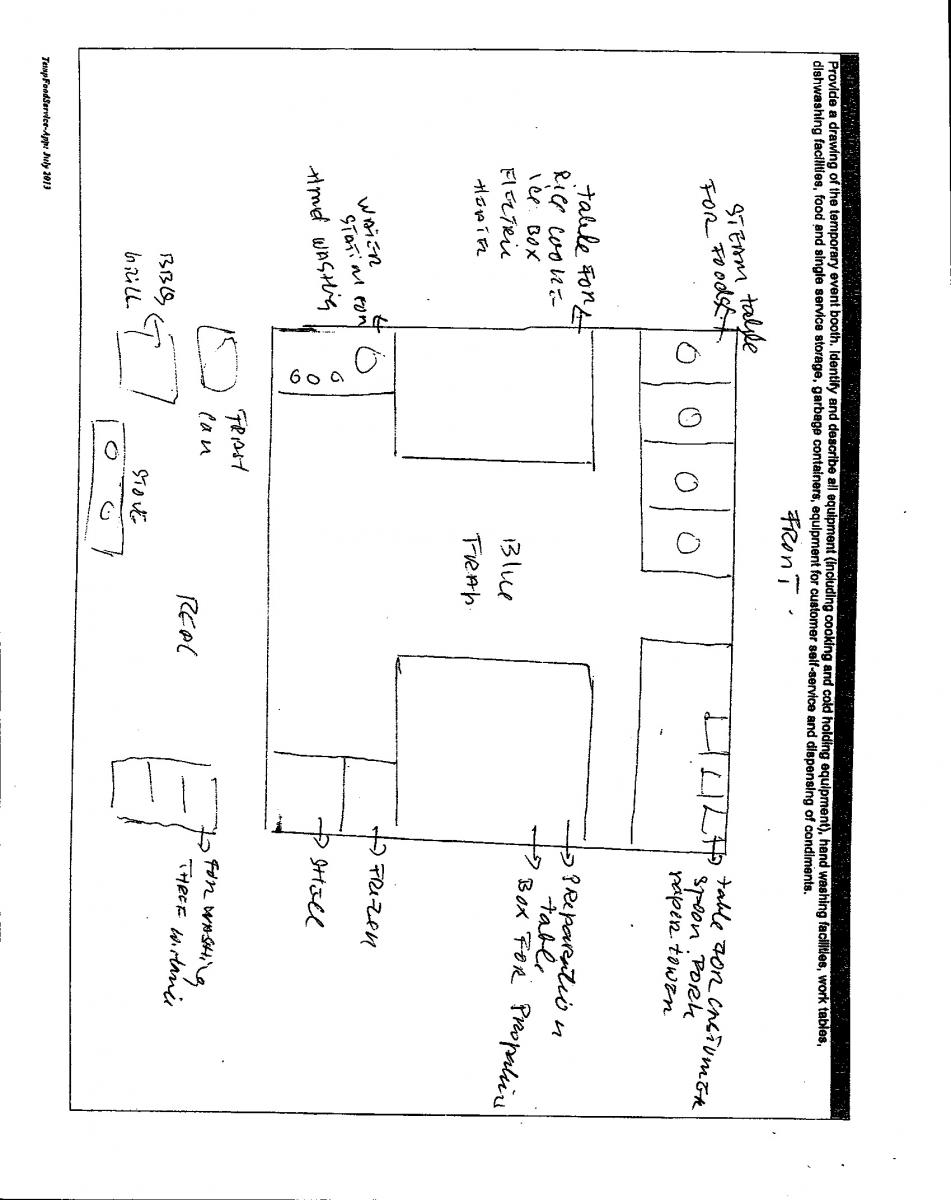 Provide a drawing of the temporary event booth. Identify and describe all equipment (including cooking and cold holding equipment), hand washing facilities, work tables,
dishwashing facilities, food and single service storage, garbage containers, equipment for customer self-service and dispensing of condiments.
FRONT.
STEAM table
FOR FOODS
table FOR
RICE COOKE
ICE BOX
ELECTRIC
WATER
STATION FOR
HAND WASHIG
table FOR
SPOON FORK
PAPER TOWEN
PREPARATION
table
BOX FOR
FRIZEN
Blue
BBQ
GRILL
TRAST
CAN
STOVE
REAL
FOR WASHING
THREE
TempFoodService-App: July 2013